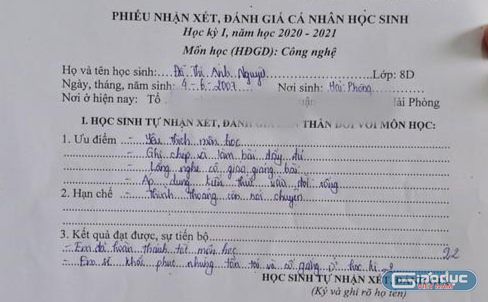 PHIẾU NHẬN XÉT, ĐÁNH GIÁ CÁ NHÂN HỌC SINH
Học kỳ I, năm học 2020 - 2021
Môn học (HĐGD): Công nghệ
Họ và tên học sinh: Đỗ Thị Anh Nguyệt Lớp: 8D
Ngày, tháng, năm sinh: 4-6-2007 Nơi sinh: Hải Phòng
Nơi ở hiện nay: Tổ Hải Phòng
I. HỌC SINH TỰ NHẬN XÉT, ĐÁNH THÂN ĐỐI VỚI MÔN HỌC:
1. Ưu điểm - Yêu thích môn học
- Ghi chép và làm bài đầy đủ
- Lắng nghe cô giáo giảng bài
- Áp dụng kiến thức vào đời sống
2. Hạn chế - Thỉnh thoảng còn nói chuyện
3. Kết quả đạt được, sự tiến bộ
- Em đã hoàn thành tốt môn học
- Em sẽ khắc phục những tồn tại và cố gắng ở học kì 2
HỌC SINH TỰ NHẬN XÉT
(Ký và ghi rõ họ tên)
Giáodục
VIỆT NAM